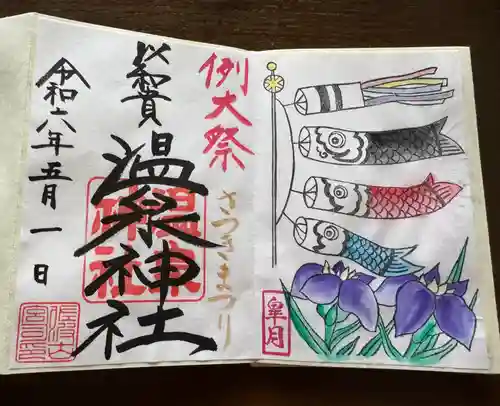 例大祭
さつきまつり
皐月
以和貴
温泉神社
令和六年五月一日